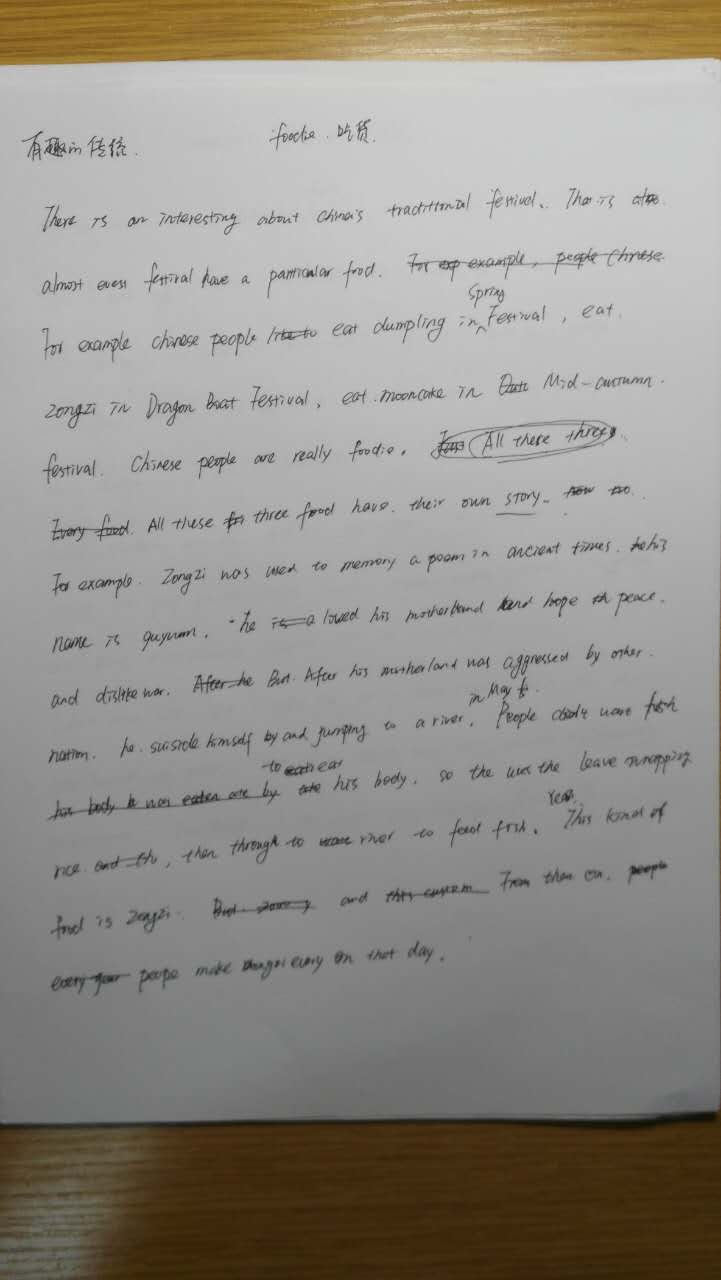 有趣的传统. foodie. 吃货.
There is an interesting about china's traditional festival. That is
almost every festival have a particular food. For exp example, people Chinese
Spring
For example chinese people like to eat dumpling in Festival, eat.
zongzi in Dragon Boat Festival, eat mooncake in Mid-autumn.
festival. Chinese people are really foodie. All these three
Every food. All these three food have. their own story.
For example. Zongzi was used to memory a poem in ancient times. his
name is quyuan. he is a loved his motherland and hope peace.
and dislike war. After he But. After his motherland was aggressed by other.
in May
nation. he. suiside himself by and jumping to a river. People want fish
to eat
his body was eaten by his body. so the the leave wrapping
Year.
rice and, then through to river to food fish. This kind of
food is zongzi. and this custom From then on. people
every year peope make every on that day.